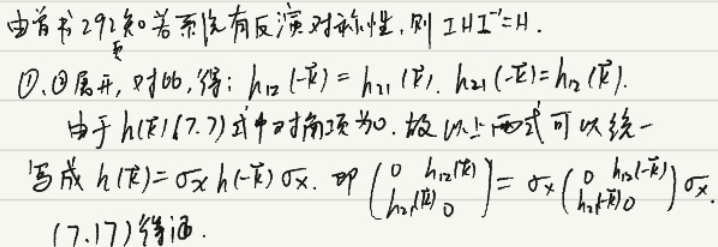 由首书292知。若系统有反演对称性,则 IHI⁻¹=H.
①.②展开,对比,得: h₁₂(-k⃗) = h₂₁(k⃗). h₂₁(-k⃗)=h₁₂(k⃗).
由于 h(k⃗)(7.7)式中对角项为0.故以上两式可以统一
写成 h(k⃗)=σₓ h(-k⃗) σₓ. 即 (0 h₁₂(k⃗) h₂₁(k⃗) 0) = σₓ (0 h₁₂(-k⃗) h₂₁(-k⃗) 0) σₓ.
(7.17)得证.